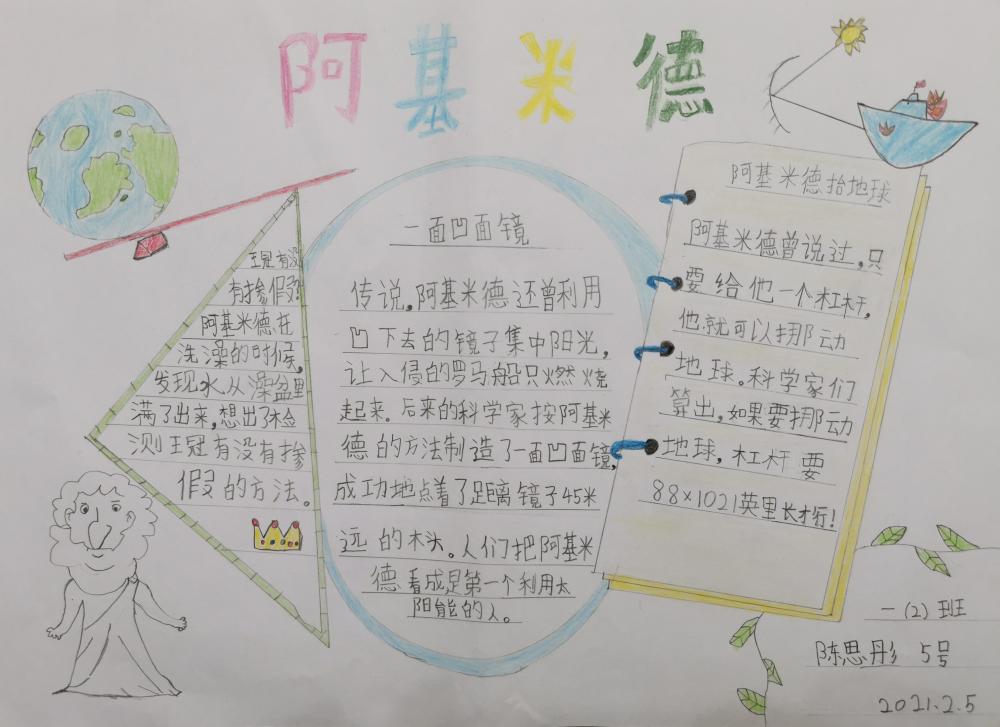 阿基米德
王冠有没
有掺假?
阿基米德在
洗澡的时候,
发现水从澡盆里
满了出来,想出了检
测王冠有没有掺
假的方法。
一面凹面镜
传说,阿基米德还曾利用
凹下去的镜子集中阳光,
让入侵的罗马船只燃烧
起来。后来的科学家按阿基米
德的方法制造了一面凹面镜,
成功地点着了距离镜子45米
远的木头。人们把阿基米
德看成是第一个利用太
阳能的人。
阿基米德抬地球
阿基米德曾说过,只
要给他一个杠杆,
他就可以挪动
地球。科学家们
算出,如果要挪动
地球,杠杆要
88×1021英里长才行!
一(2)班
陈思彤 5号
2021.2.5